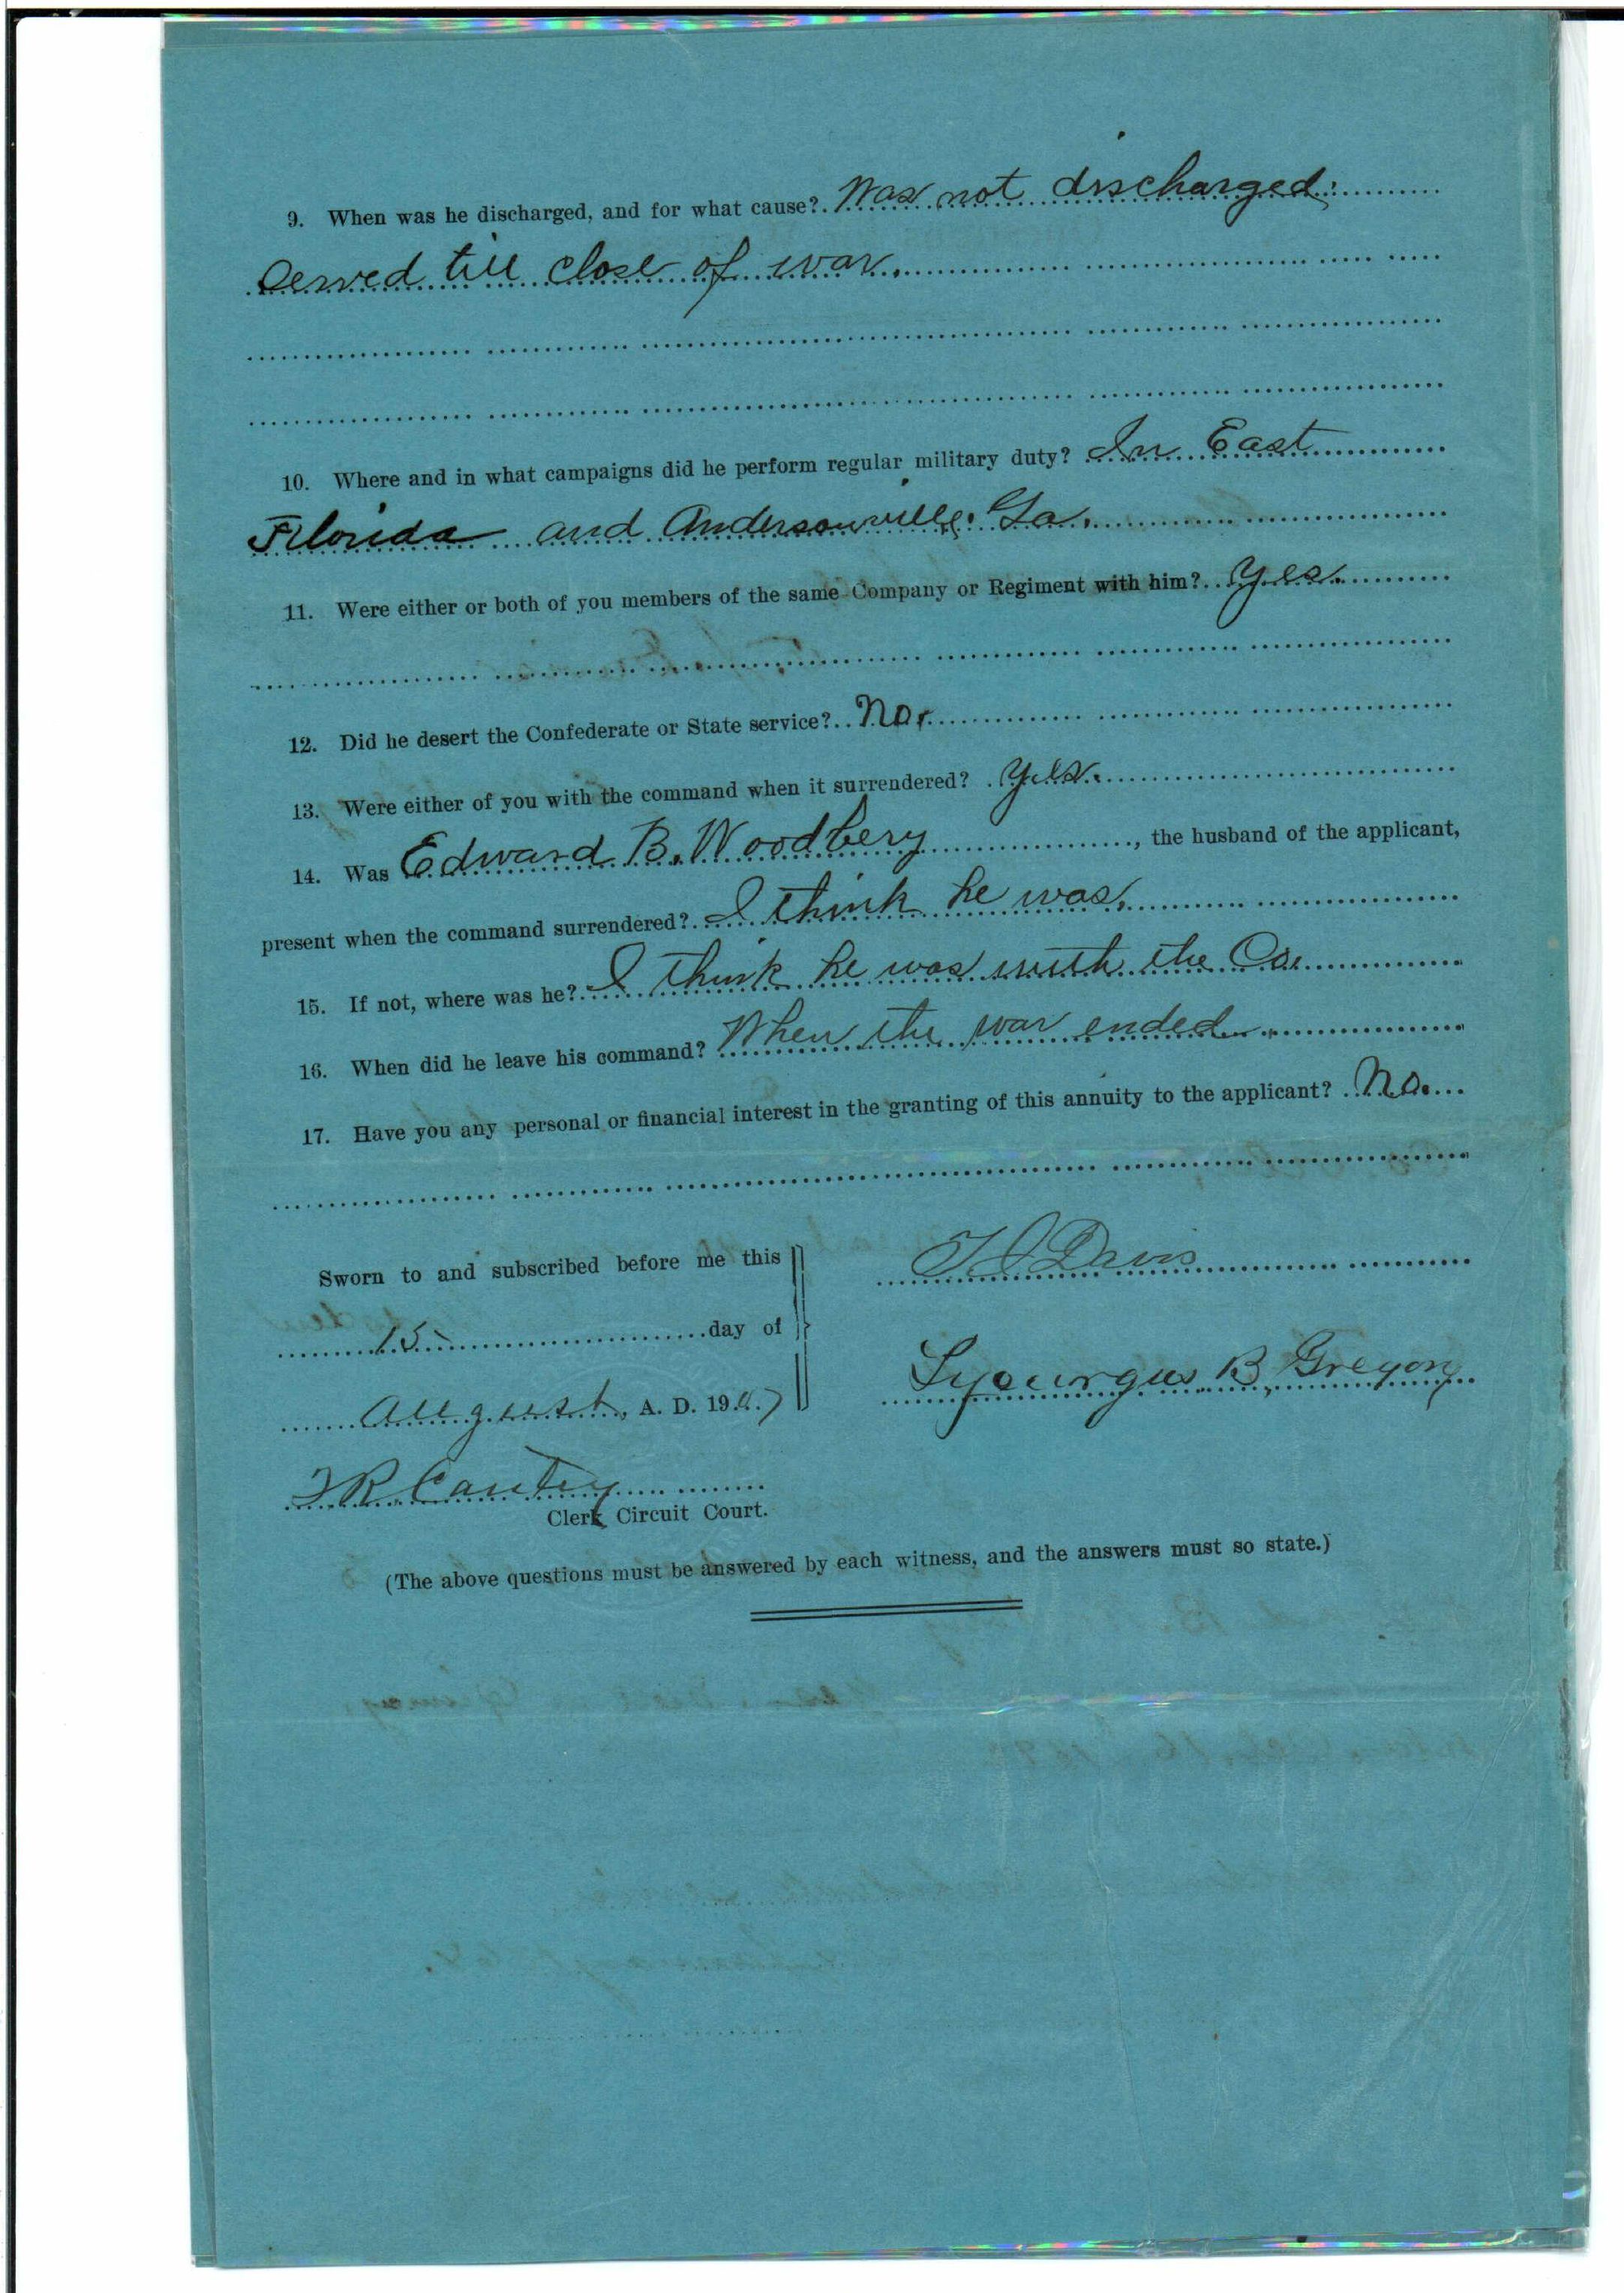 9. When was he discharged, and for what cause? Was not discharged.
Served till close of war.
10. Where and in what campaigns did he perform regular military duty? In East
Florida and Andersonville. Ga.
11. Were either or both of you members of the same Company or Regiment with him? Yes.
12. Did he desert the Confederate or State service? No.
13. Were either of you with the command when it surrendered? Yes.
14. Was Edward B. Woodbery, the husband of the applicant,
present when the command surrendered? I think he was.
15. If not, where was he? I think he was with the Co.
16. When did he leave his command? When the war ended.
17. Have you any personal or financial interest in the granting of this annuity to the applicant? No.
Sworn to and subscribed before me this
15 day of
August, A. D. 1907
T J Davis
Lycurgus B Gregory
Clerk Circuit Court.
(The above questions must be answered by each witness, and the answers must so state.)